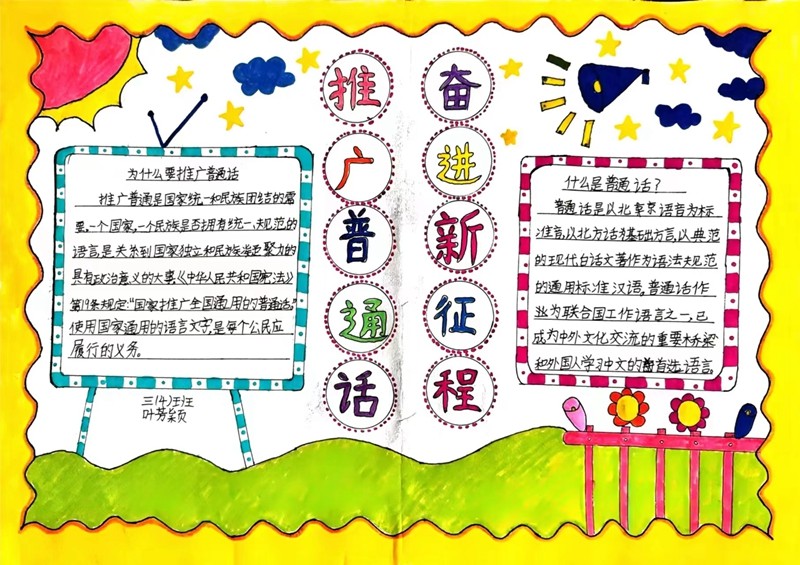 推广普通话
奋进新征程
为什么要推广普通话
推广普通是国家统一和民族团结的需
要。一个国家,一个民族是否拥有统一、规范的
语言是关系到国家独立和民族凝聚力的
具有政治意义的大事《中华人民共和国宪法》
第19条规定:"国家推广全国通用的普通话。"
使用国家通用的语言文字,是每个公民应
履行的义务。
三(4)班
叶芳颖
什么是普通话?
普通话是以北京语音为标
准音,以北方话为基础方言,以典范
的现代白话文著作为语法规范
的通用标准汉语,普通话作
业为联合国工作语言之一,已
成为中外文化交流的重要桥梁
和外国人学习中文的首选语言